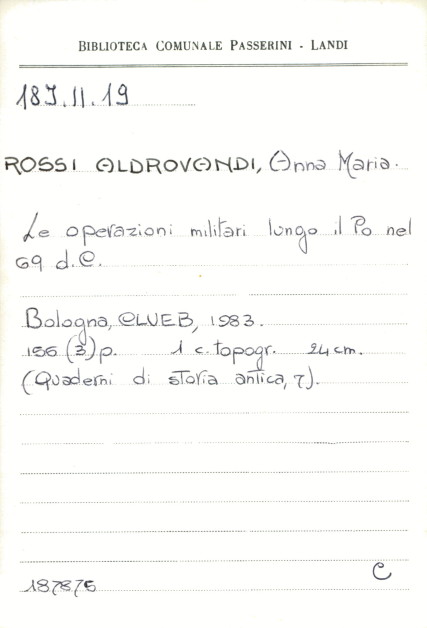 BIBLIOTECA COMUNALE PASSERINI - LANDI
18J.II.19
ROSSI ALDROVANDI, Anna Maria.
Le operazioni militari lungo il Po nel
69 d.C.
Bologna, CLUEB, 1983.
156 (3) p. 1 c. topogr. 24 cm.
(Quaderni di storia antica, 7).
C
187875